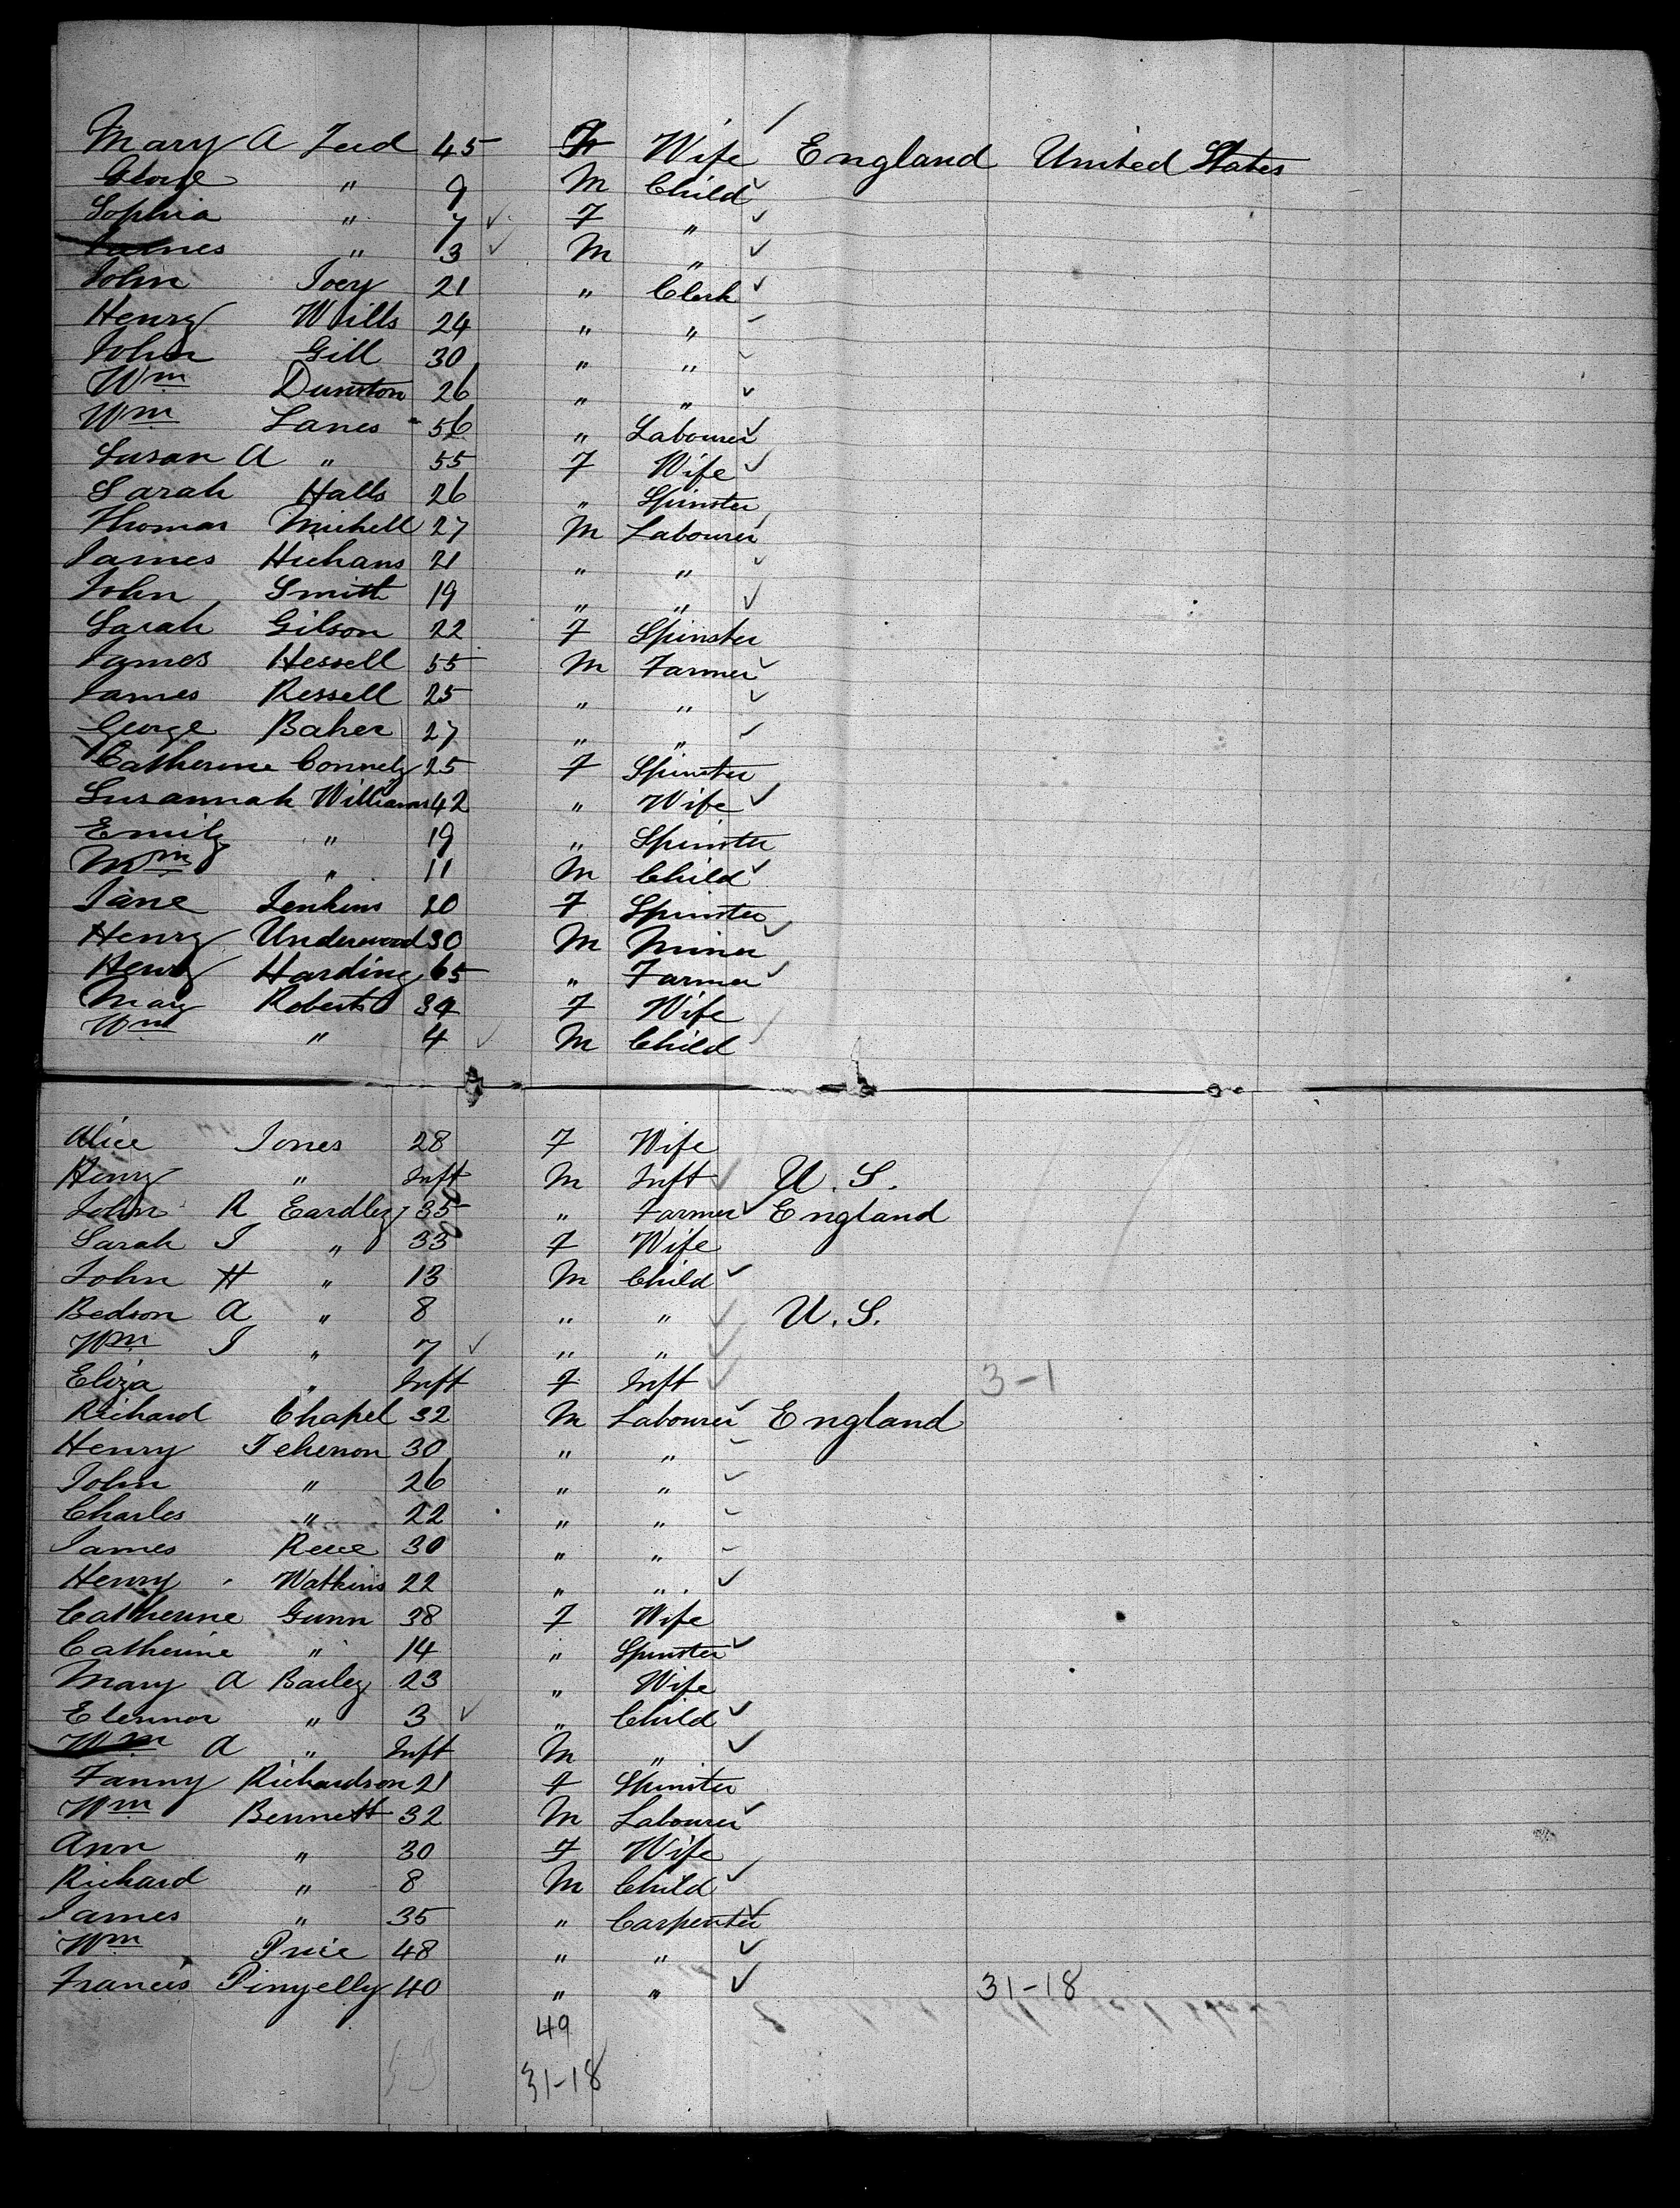 Mary A Teed 45 F Wife England United States
George " 9 M Child
Sophia " 7 F "
James " 3 M "
John Ivey 21 " Clerk
Henry Wills 24 " "
John Gill 30 " "
Wm Dunston 26 " "
Wm Lanes 56 " Labourer
Susan A " 55 F Wife
Sarah Halls 26 " Spinster
Thomas Michell 27 M Labourer
James Hichans 21 " "
John Smith 19 " "
Sarah Gilson 22 F Spinster
James Hessell 55 M Farmer
James Ressell 25 " "
George Baker 27 " "
Catherine Connely 25 F Spinster
Susannah Williams 42 " Wife
Emily " 19 " Spinster
Wm " 11 M Child
Jane Jenkins 20 F Spinster
Henry Underwood 30 M Miner
Henry Harding 65 " Farmer
Mary Roberts 34 F Wife
Wm " 4 M Child
Alice Jones 28 F Wife
Henry " Inft M Inft U.S.
John R Eardley 35 " Farmer England
Sarah J " 33 F Wife
John H " 13 M Child
Bedson A " 8 " " U.S.
Wm J " 7 " "
Eliza " Inft F Inft 3-1
Richard Chapel 32 M Labourer England
Henry 30 " "
John " 26 " "
Charles " 22 " "
James Reece 30 " "
Henry Watkins 22 " "
Catherine Gunn 38 F Wife
Catherine " 14 " Spinster
Mary A Bailey 23 " Wife
Elennor " 3 " Child
Wm A " Inft M "
Fanny Richardson 21 F Spinster
Wm Bennett 32 M Labourer
Ann " 30 F Wife
Richard " 8 M Child
James " 35 " Carpenter
Wm Price 48 " "
Francis Pinyelly 40 " " 31-18
49
31-18